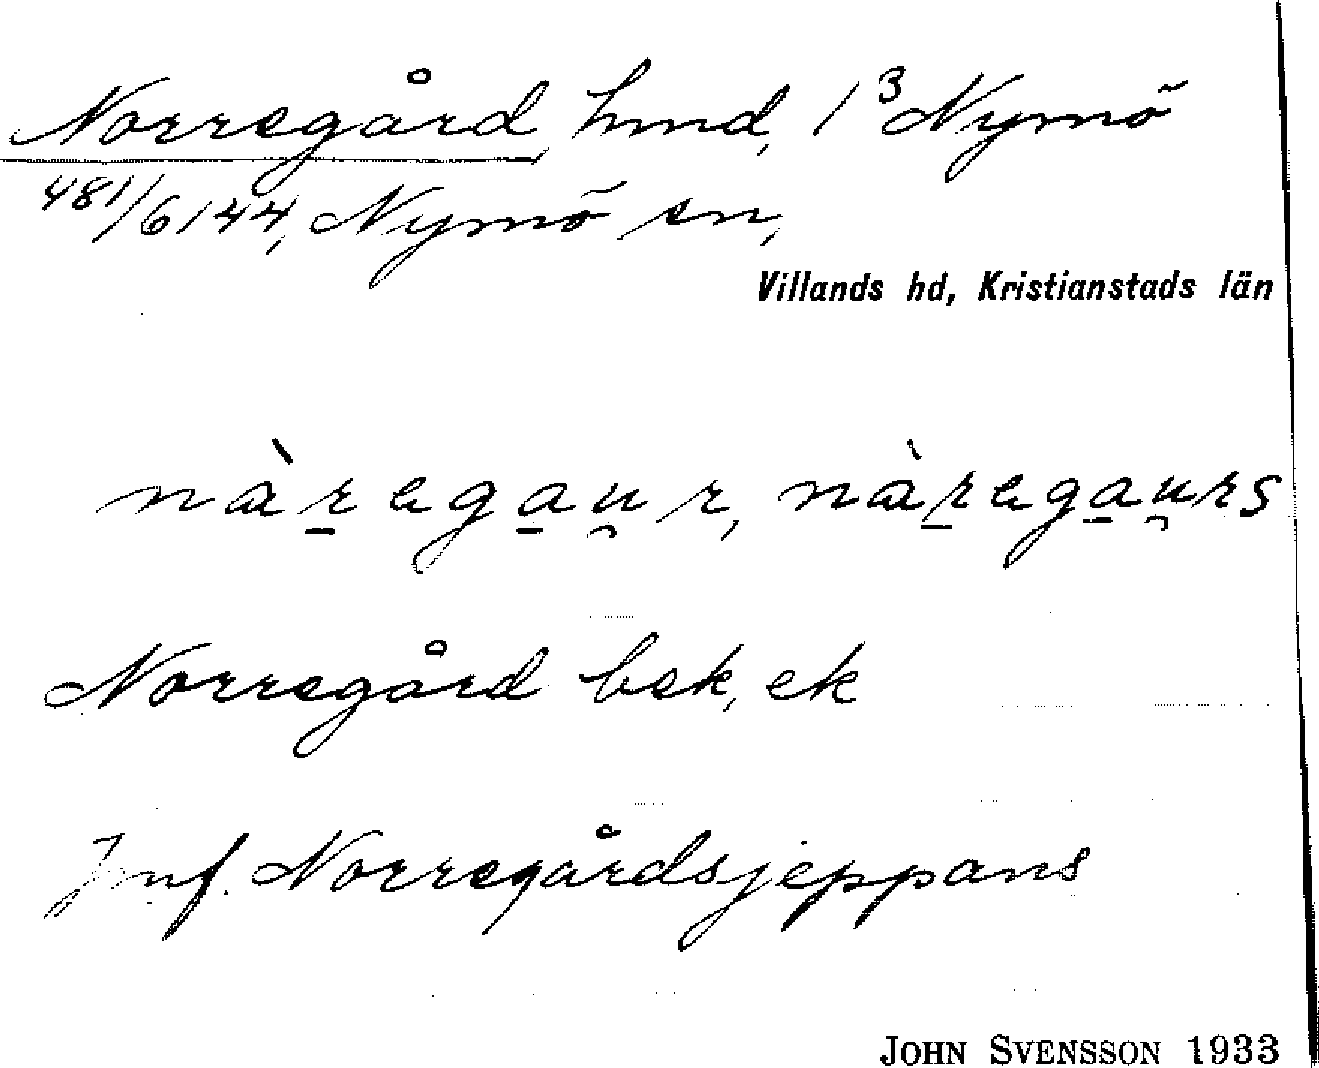 Norregård, hmd, 1³ Nymö
481/6144, Nymö sn,
Villands hd, Kristianstads län
nàregau̯r, nàregau̯rs
Norregård bsk, ek
Jmf. Norregårdsjeppans
JOHN SVENSSON 1933